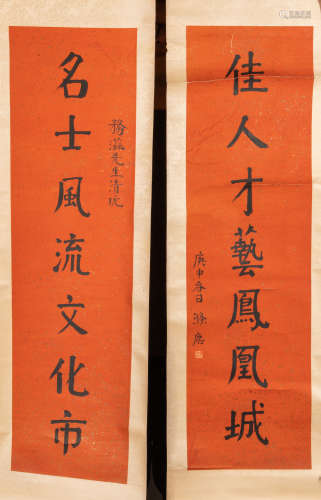 佳人才藝鳳凰城
庚申春日
名士風流文化市
務滋先生清玩